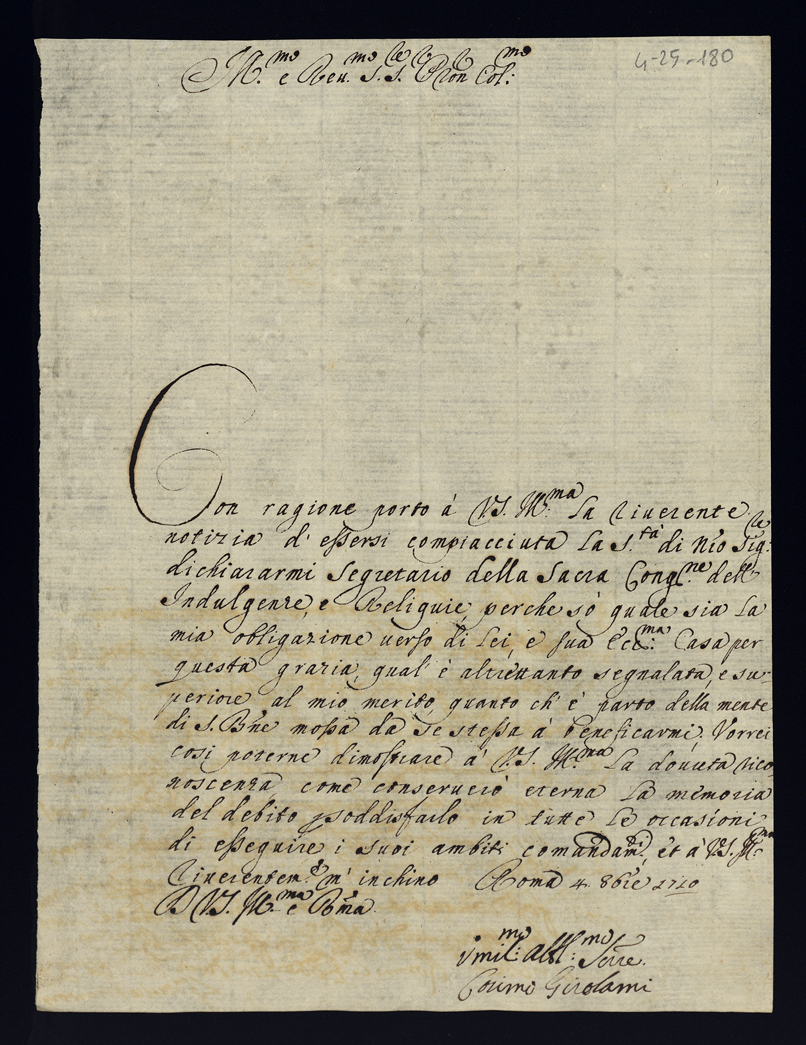 Ill.mo e Reu.mo S.r S.r Pron Col:mo
4-25-180
Con ragione porto à V.S. Ill:ma la riuerente
notizia d'essersi compiacciuta la S.tà di Nro Sig:re
dichiararmi Segretario della Sacra Cong:ne dell'
Indulgenze, e Reliquie, perche sò quale sia la
mia obligazione uerso di Lei, e sua Ecc:ma Casa per
questa grazia, qual' è altrettanto segnalata, e su-
periore al mio merito, quanto ch' è parto della mente
di S. Bne mossa da se stessa à beneficarmi. Vorrei
cosi poterne dimostrare à V.S. Ill:ma la douuta rico-
noscenza, come conseruerò eterna la memoria
del debito p soddisfarlo in tutte le occasioni
di esseguire i suoi ambiti comandam.ti, et à V.S. Ill:ma
riuerentem.e m' inchino Roma 4. 8bre 1710
D V.S. Ill:ma e Rma
Vmil:mo Obbl:mo Serre.
Cosimo Girolami